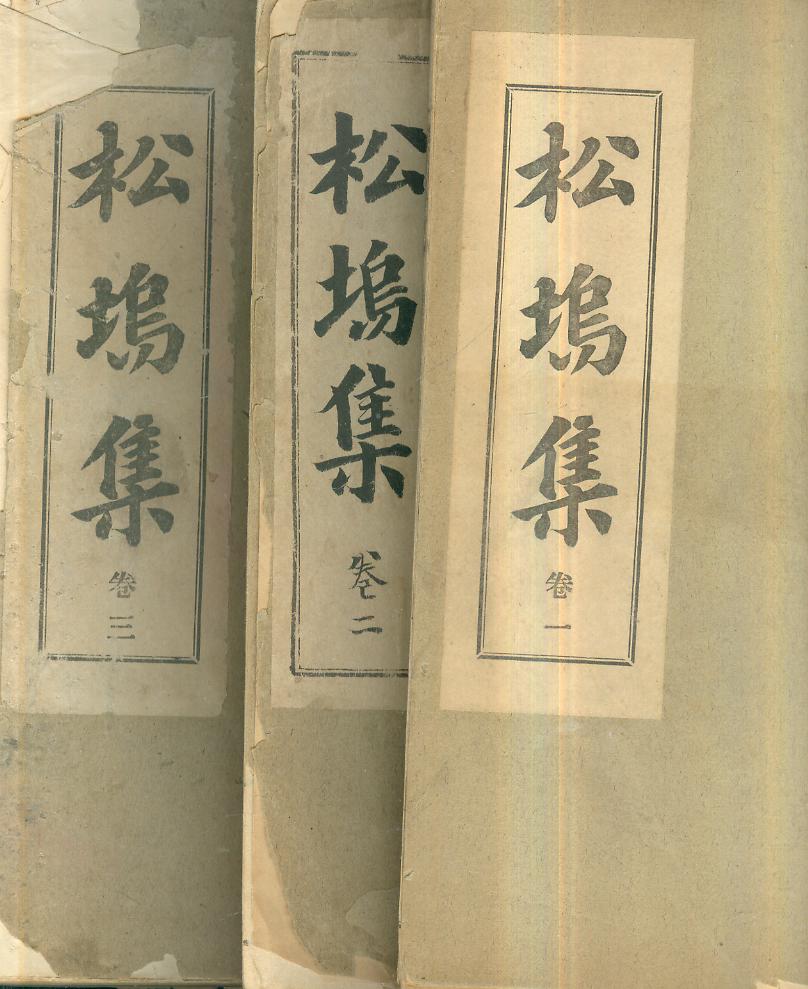 松塢集
卷一
松塢集
卷二
松塢集
卷三